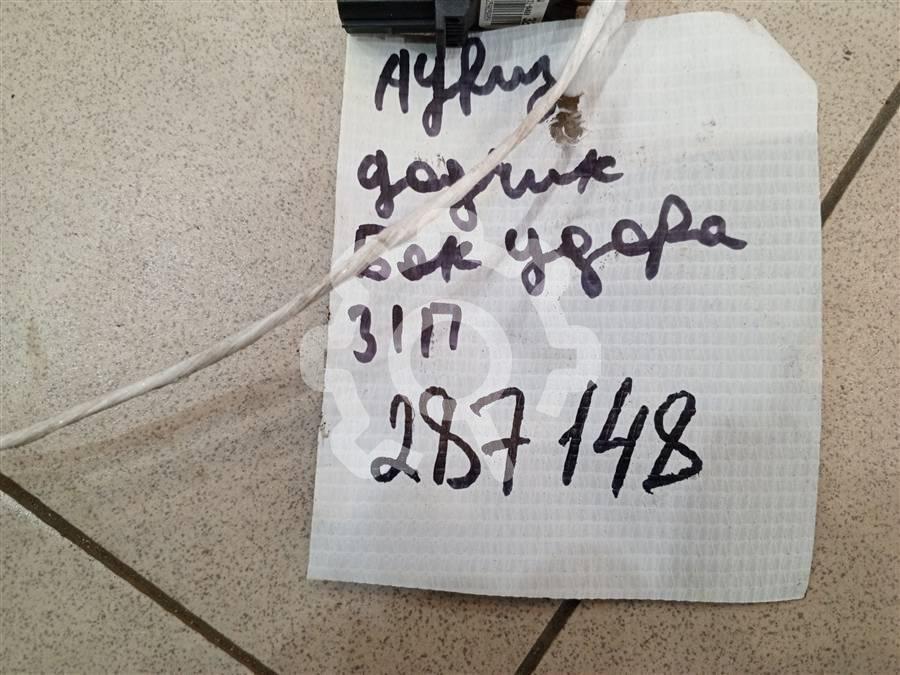 Аурис
датчик
Бок удара
ЗІП
287148